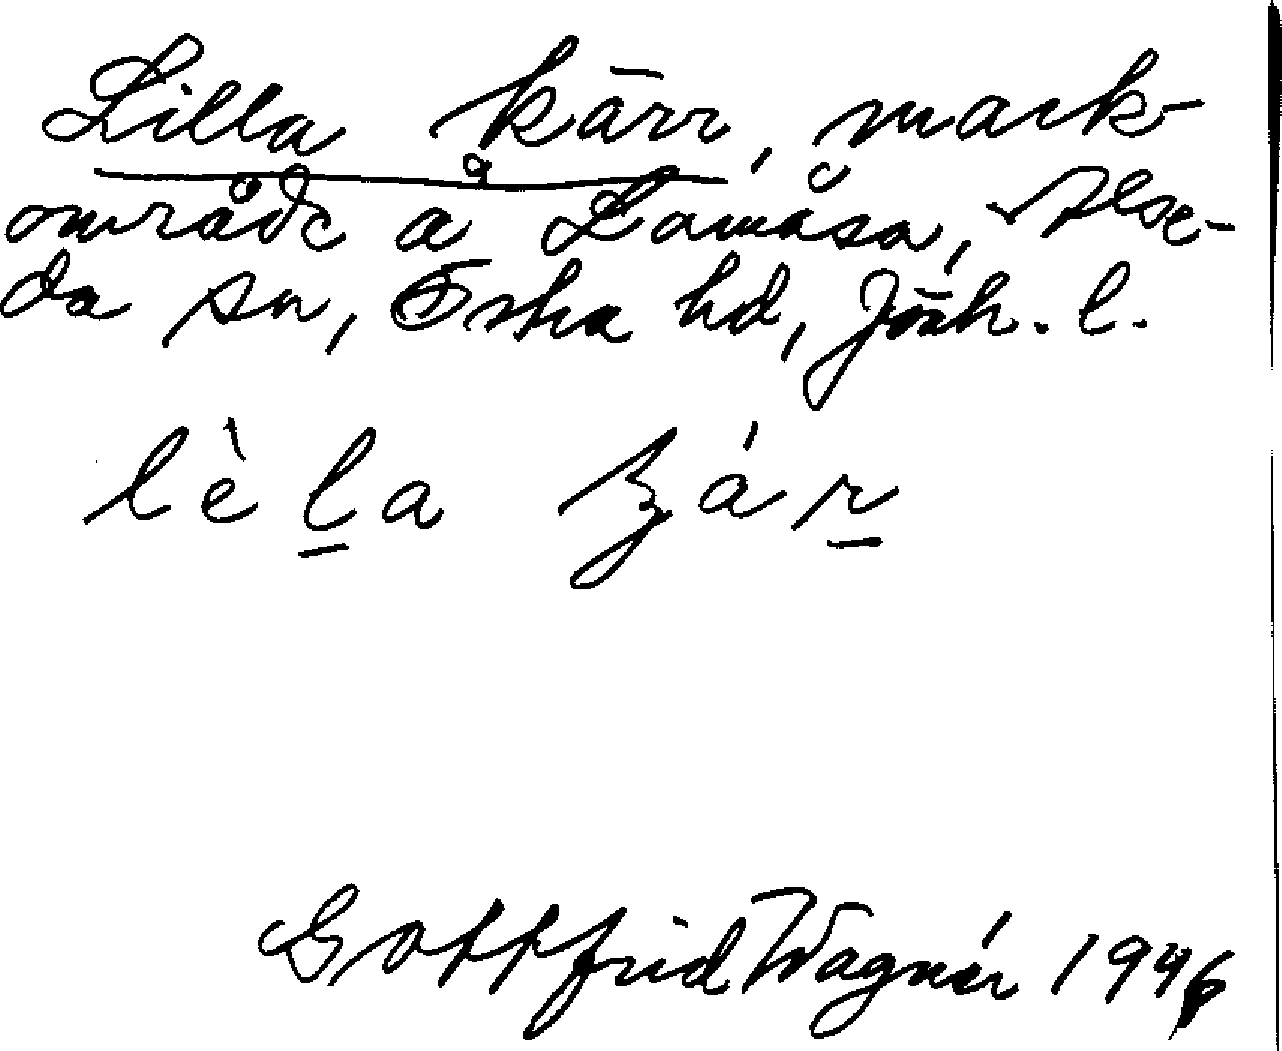 Lilla kärr, mark-
område å Lamåsa, Alse-
da sn, Östra hd, Jönk. l.
lèl̲a ʒár̲
Gottfrid Wagnér 1946